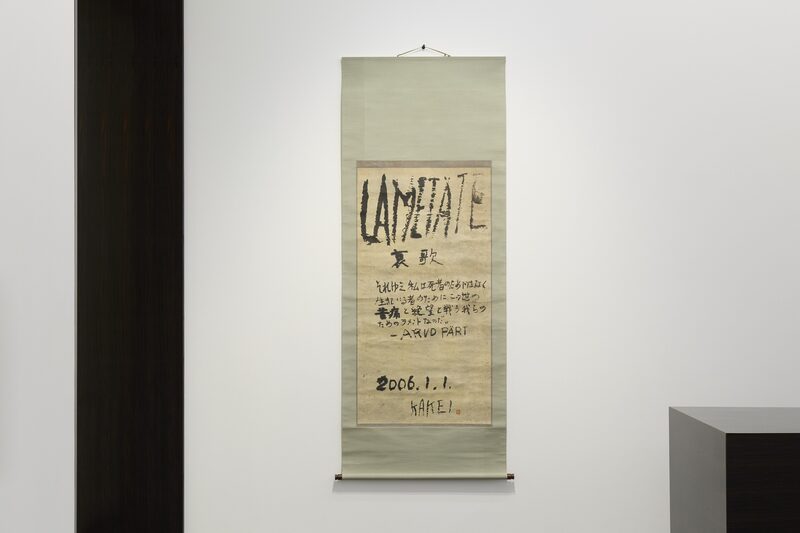 LAMETÄTE
哀歌
それゆえ、私は死者のためではなく
生きている者のためにこの世の
苦痛と絶望と戦う我らの
ためのラメントなのだ。
—ARVO PÄRT
2006.1.1.
KAKEI